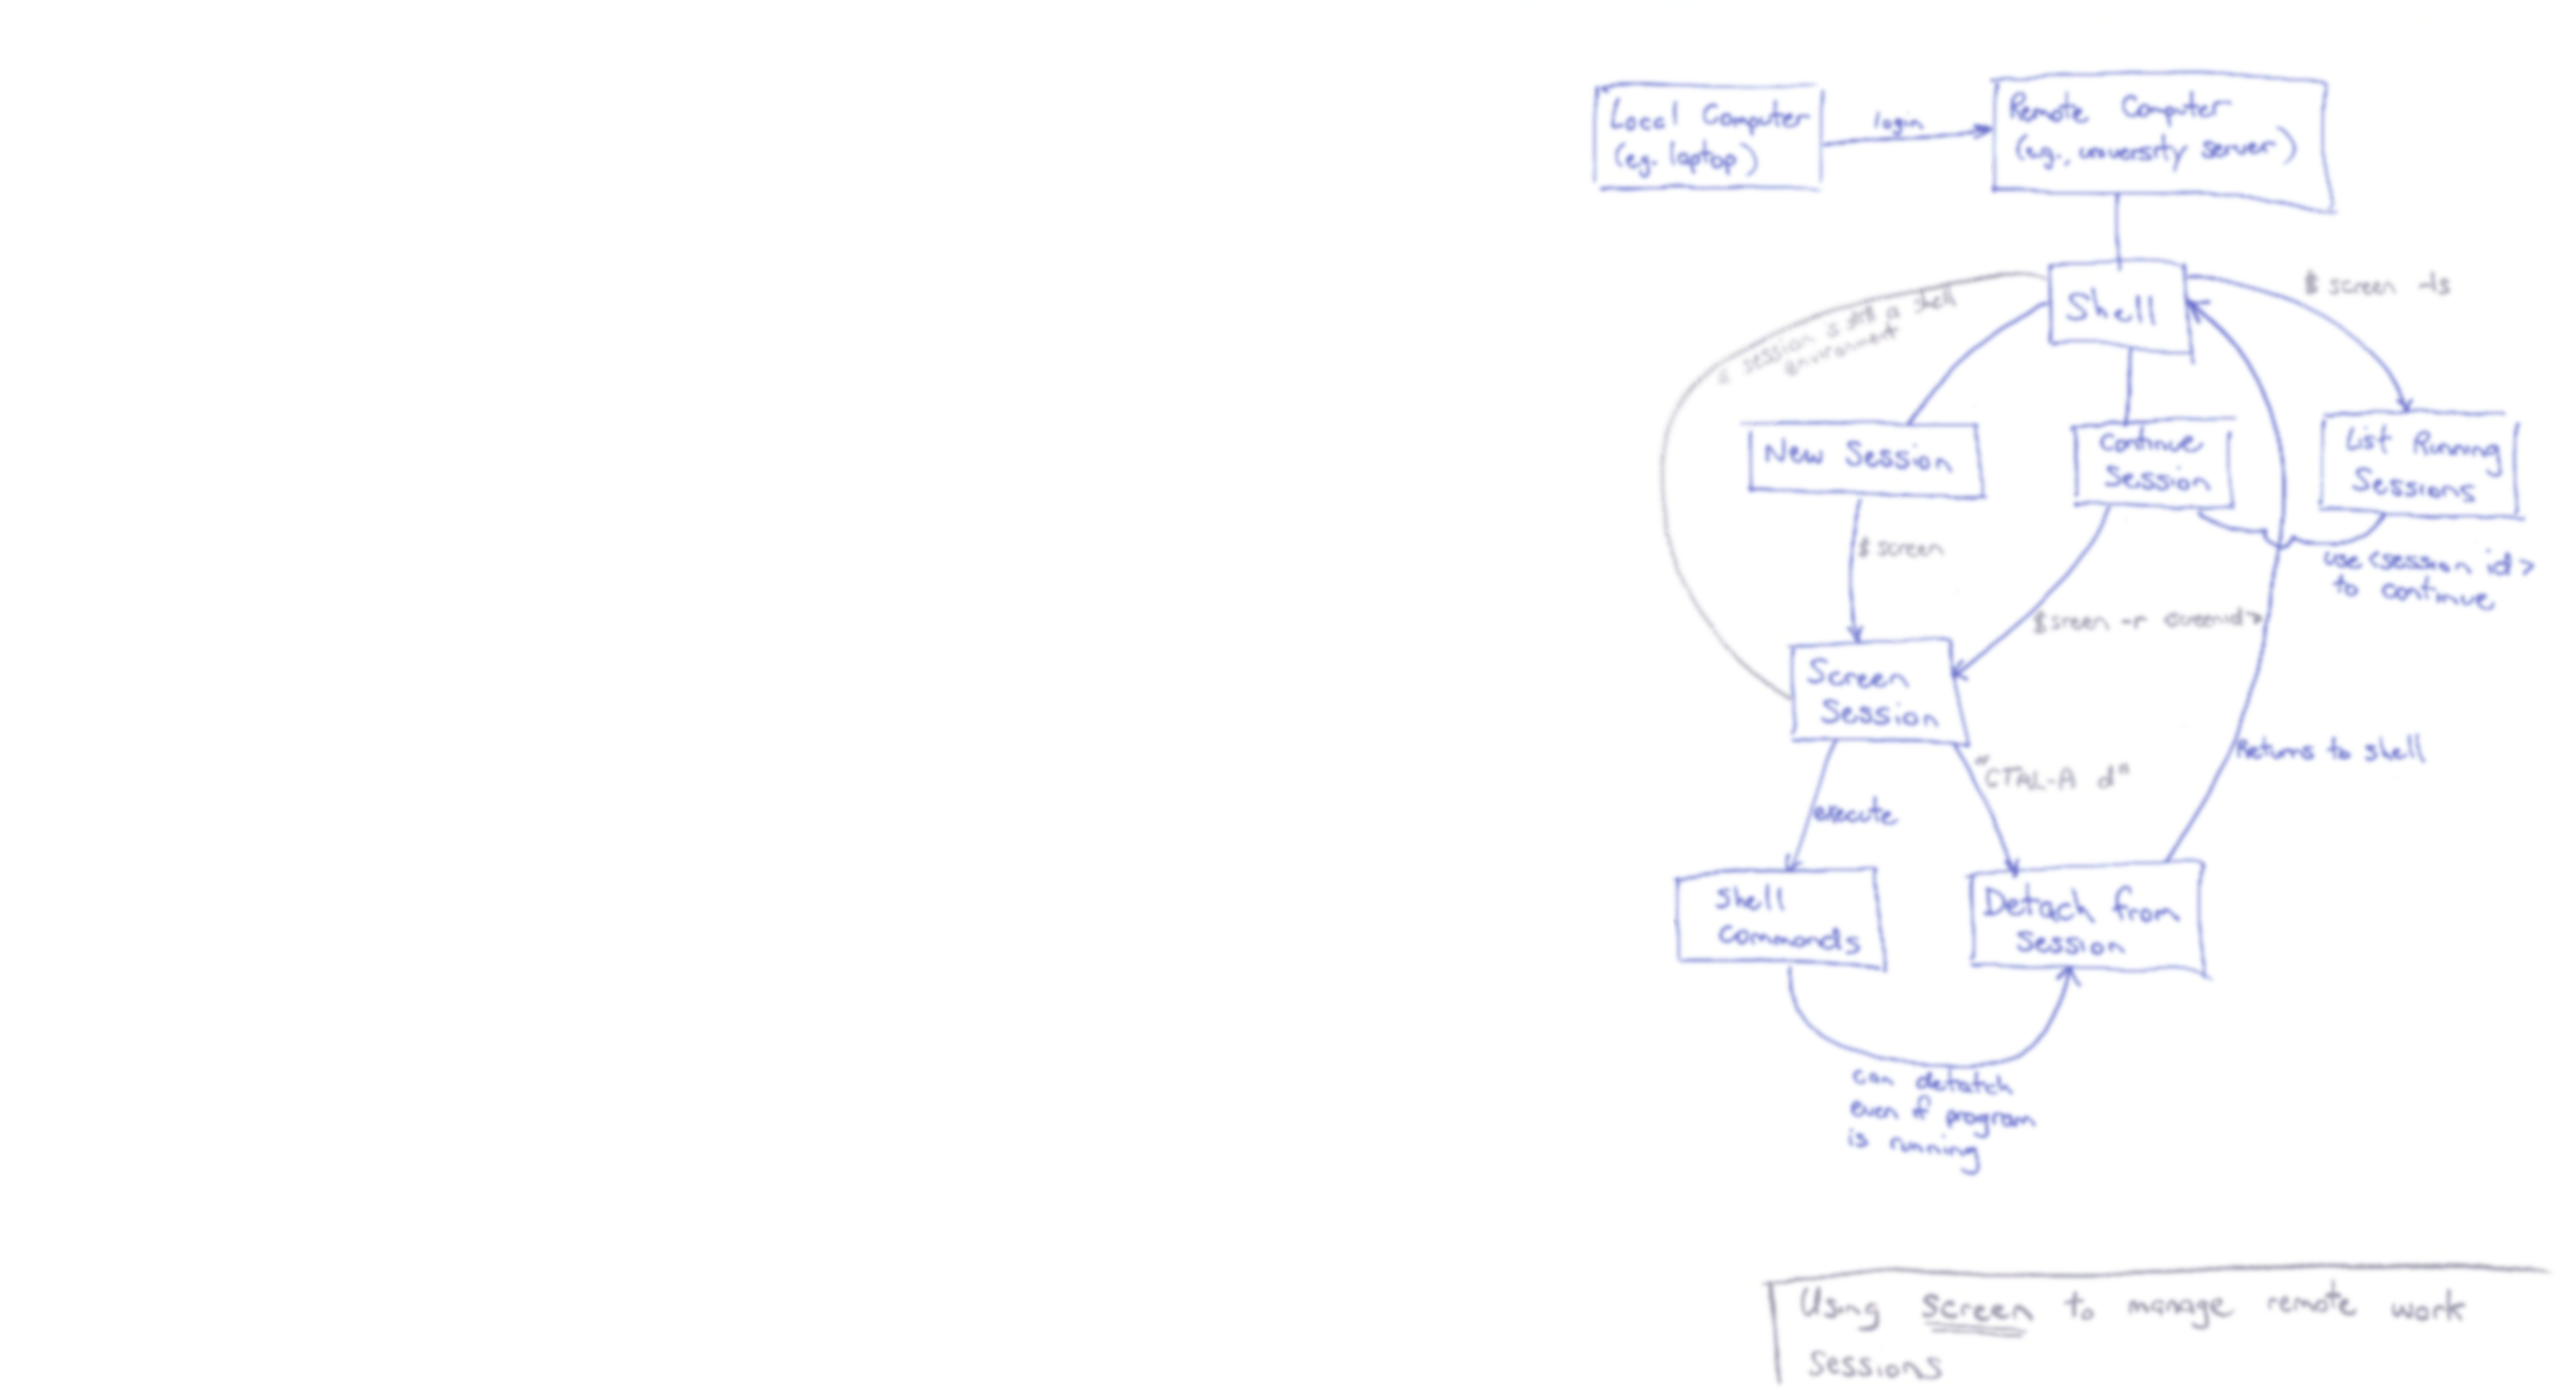 Local Computer
(eg. laptop)
login
Remote Computer
(e.g., university server)
Shell
$ screen -ls
a session is still a shell
environment
New Session
Continue
Session
List Running
Sessions
$ screen
use <session id>
to continue
$ screen -r <screenid>
Screen
Session
"CTRL-A d"
Returns to shell
execute
shell
commands
Detach from
Session
can detatch
even if program
is running
Using screen to manage remote work
sessions